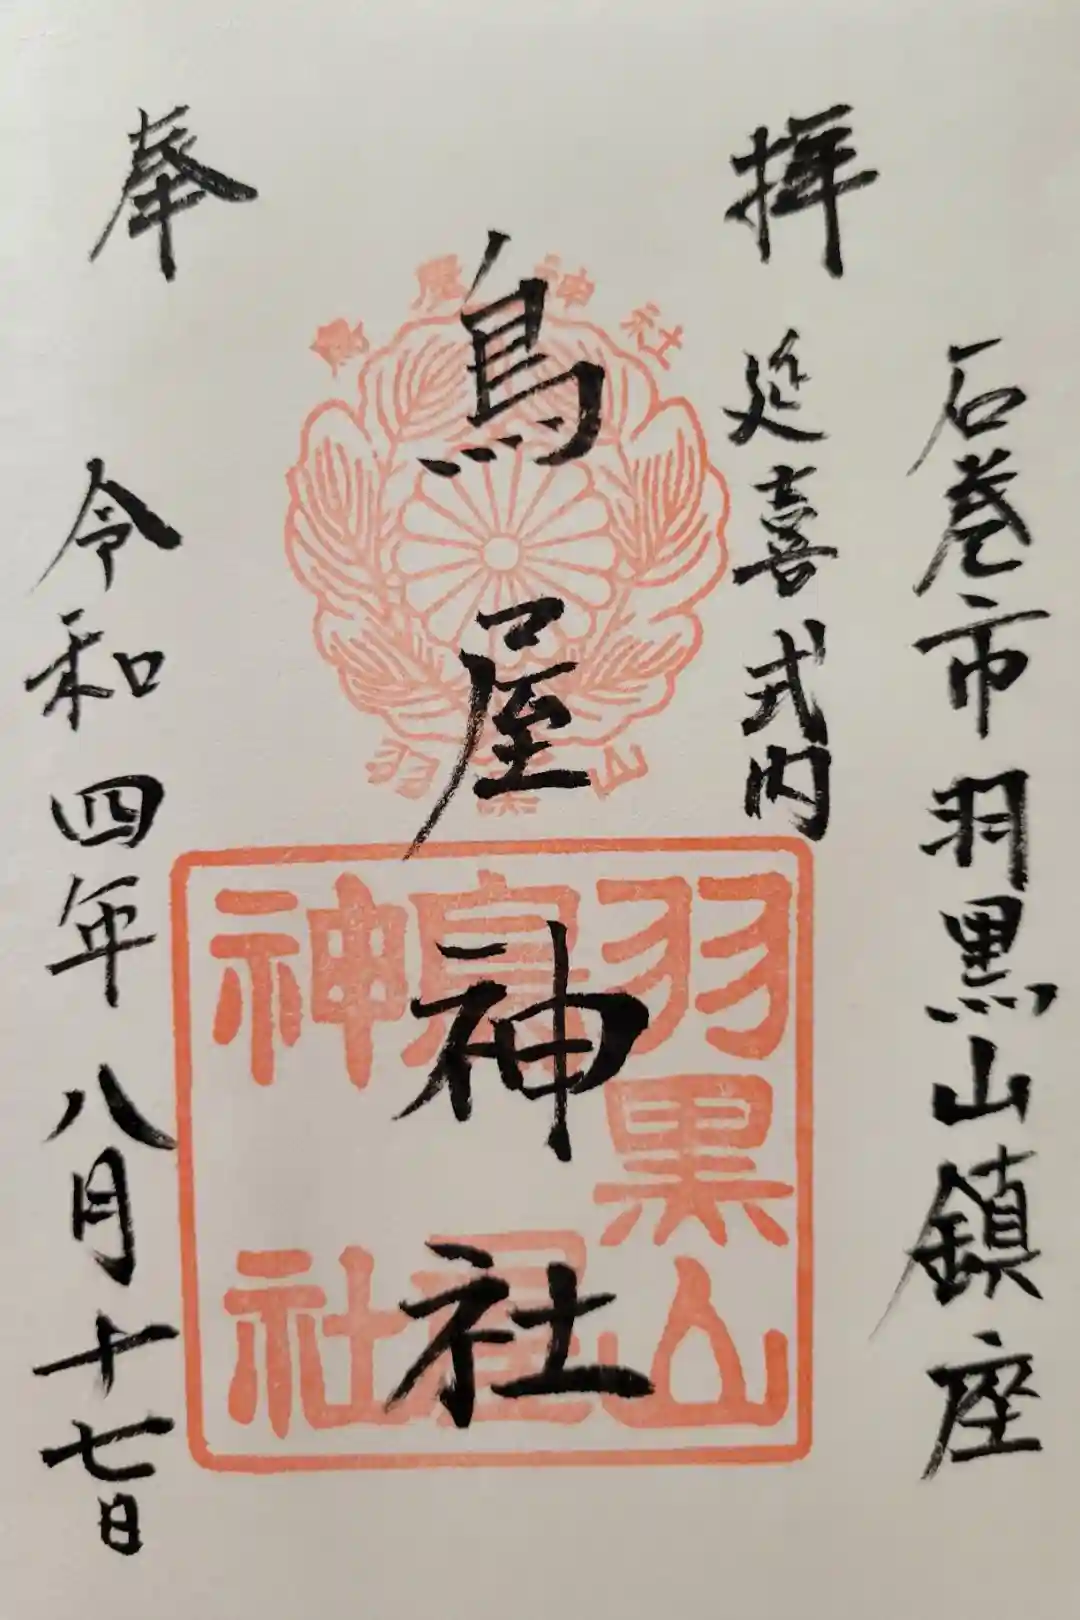 奉拝
石巻市羽黒山鎮座
延喜式内
鳥屋神社
令和四年八月十七日
鳥屋神社
羽黒山
羽黒山
鳥屋
神社